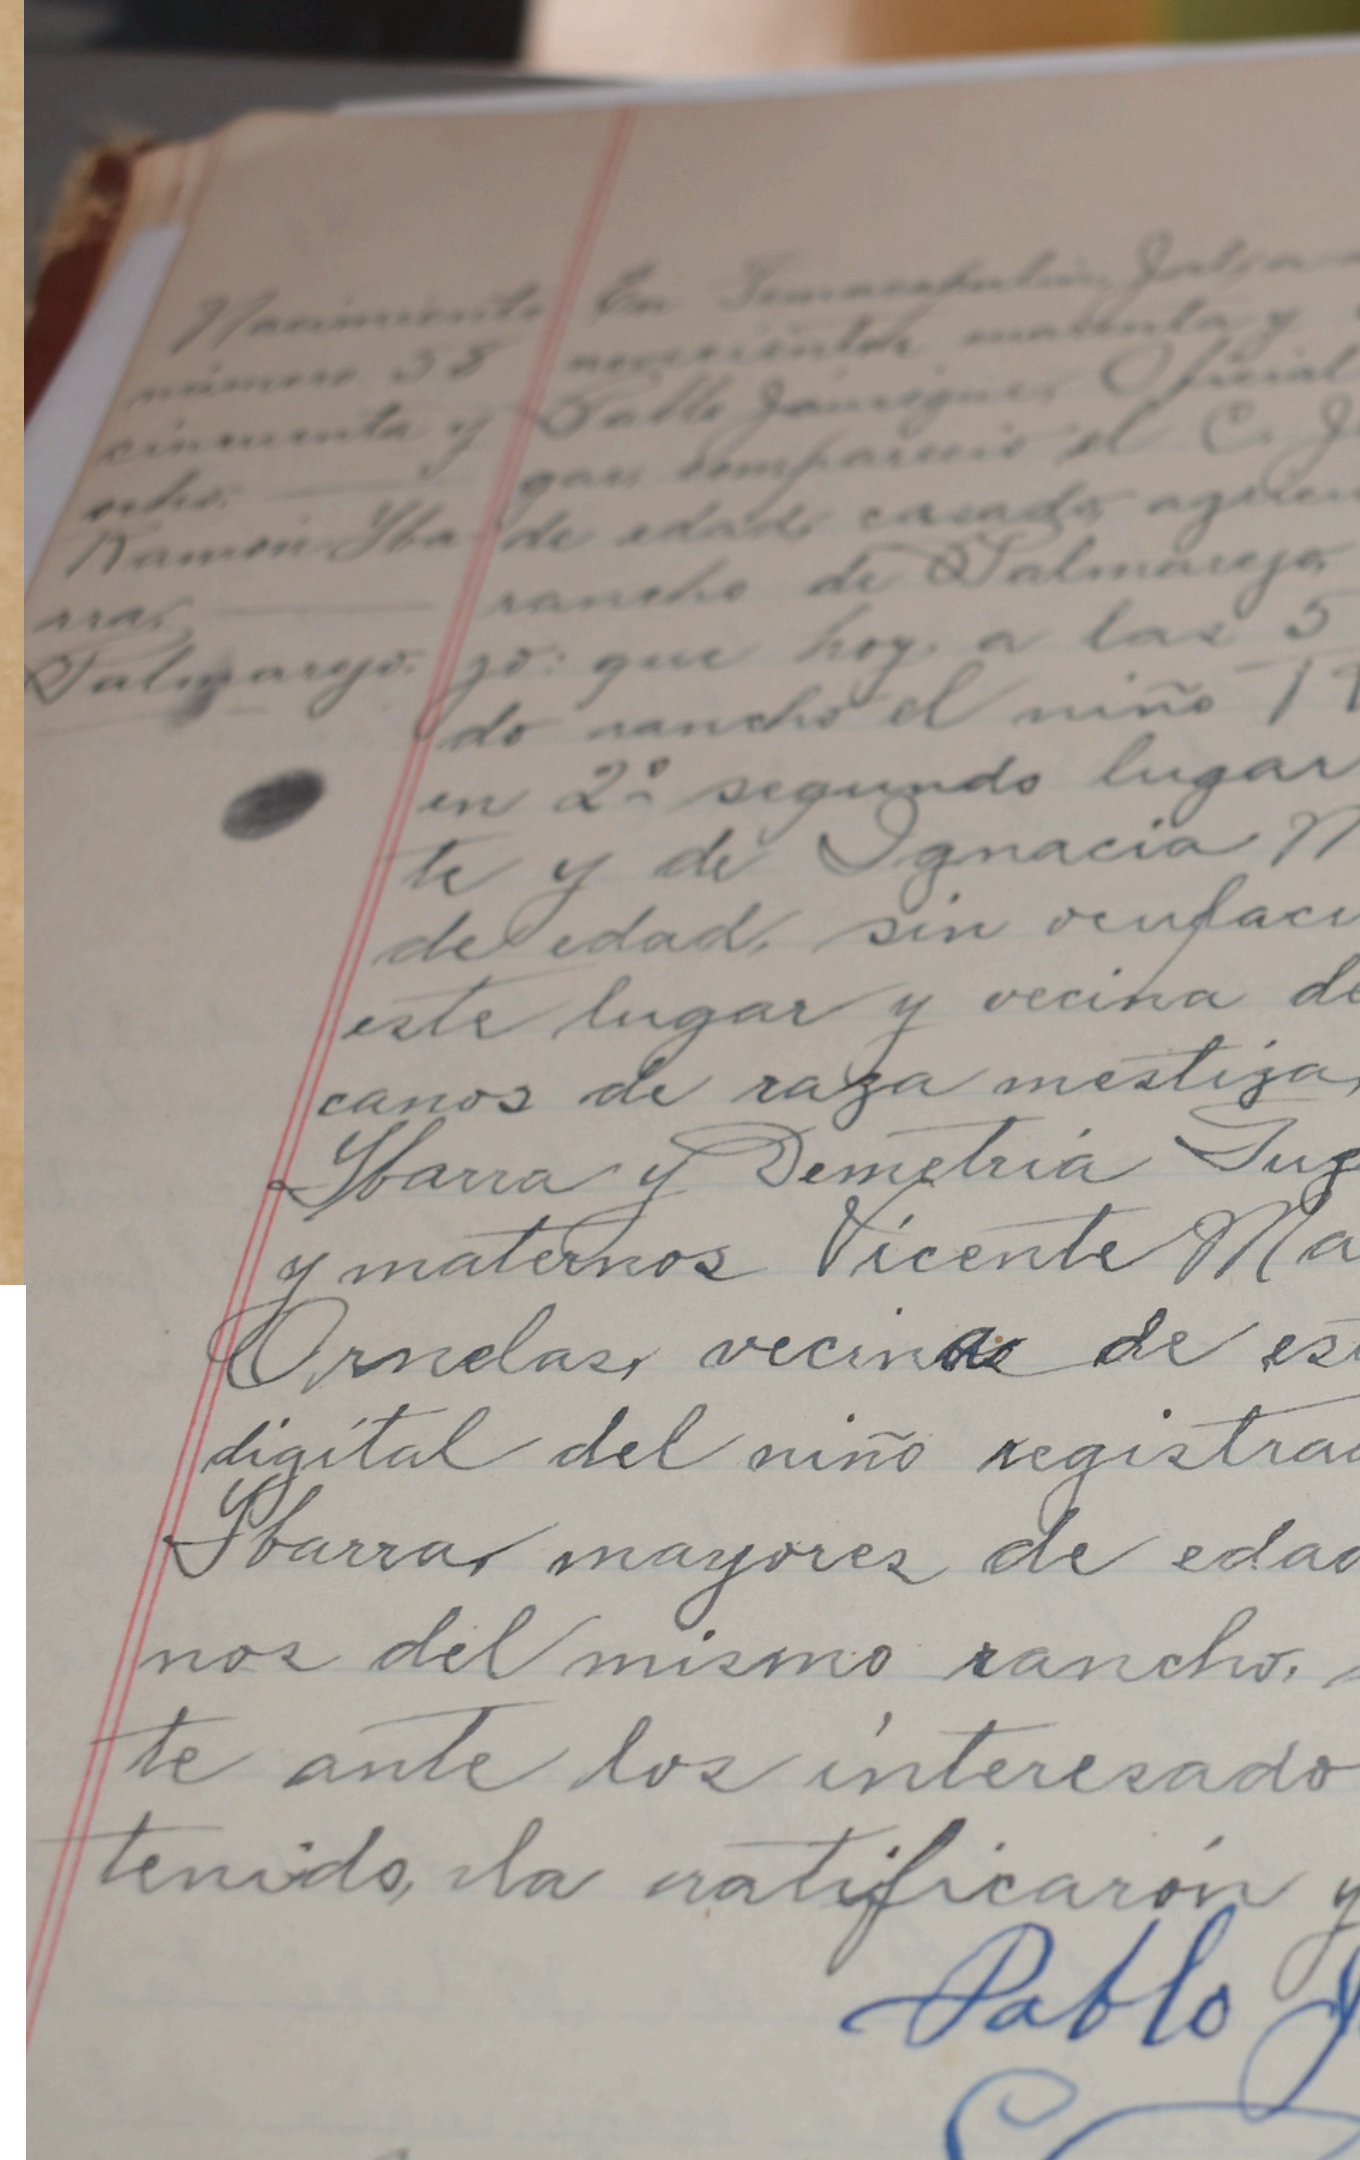 Nacimiento
número 58
cincuenta y
ocho.
Ramón Iba
rra.
Palmarejo.
En Temacapulín, Jalisco
novecientos cuarenta y
Pablo Jáuregui, Oficial
gar, compareció el C. J
de edad, casado, agricu
rancho de Palmarejo,
zo: que hoy, a las 5
do rancho el niño
en 2º segundo lugar
te y de Ignacia M
de edad, sin ocupaci
este lugar y vecina de
canos de raza mestiza,
Ibarra y Demetria
y maternos Vicente Ma
Ornelas, vecinos de est
digital del niño registrad
Ibarra, mayores de edad
nos del mismo rancho.
te ante los interesado
tenido, la ratificarón y
Pablo J